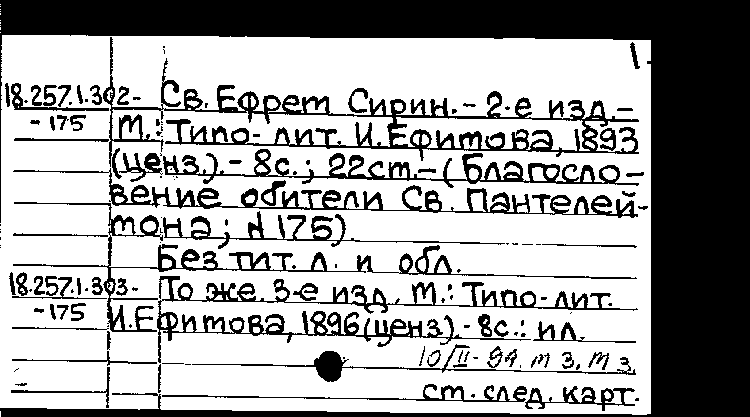 1.
18.257.1.302- Св. Ефрем Сирин. - 2-е изд. -
-175 М.: Типо-лит. И. Ефимова, 1893
(ценз.). - 8с.; 22см. - (Благосло-
вение обители Св. Пантелей-
мона; № 175)
Без тит. л. и обл.
18.257.1.303- То же. 3-е изд. М.: Типо-лит.
-175 И. Ефимова, 1896 (ценз). - 8с.: ил.
10/II-94. тз. тз.
ст. след. карт.